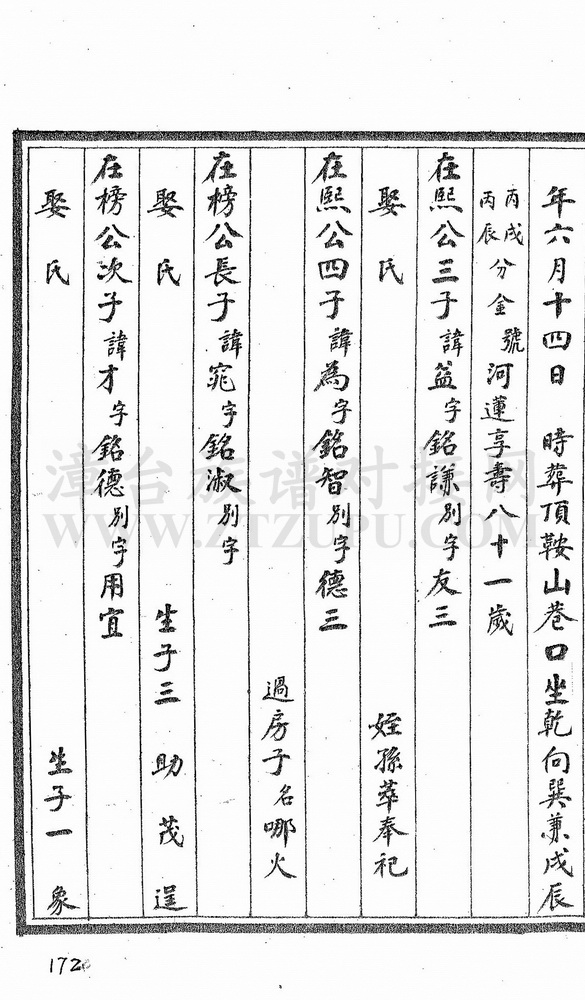 年六月十四日　時葬頂鞍山巷口坐乾向巽兼戌辰
丙戌丙辰分金號河蓮享壽八十一歲
在熙公三子諱益字銘謙別字友三
娶氏　姪孫萃奉祀
在熙公四子諱為字銘智別字德三
過房子名哪火
在榜公長子諱窕字銘淑別字
娶氏　生子三　助　茂　逞
在榜公次子諱才字銘德別字用宜
娶氏　生子一　象
漳台族谱对接网
WWW.ZTZUPU.COM
172